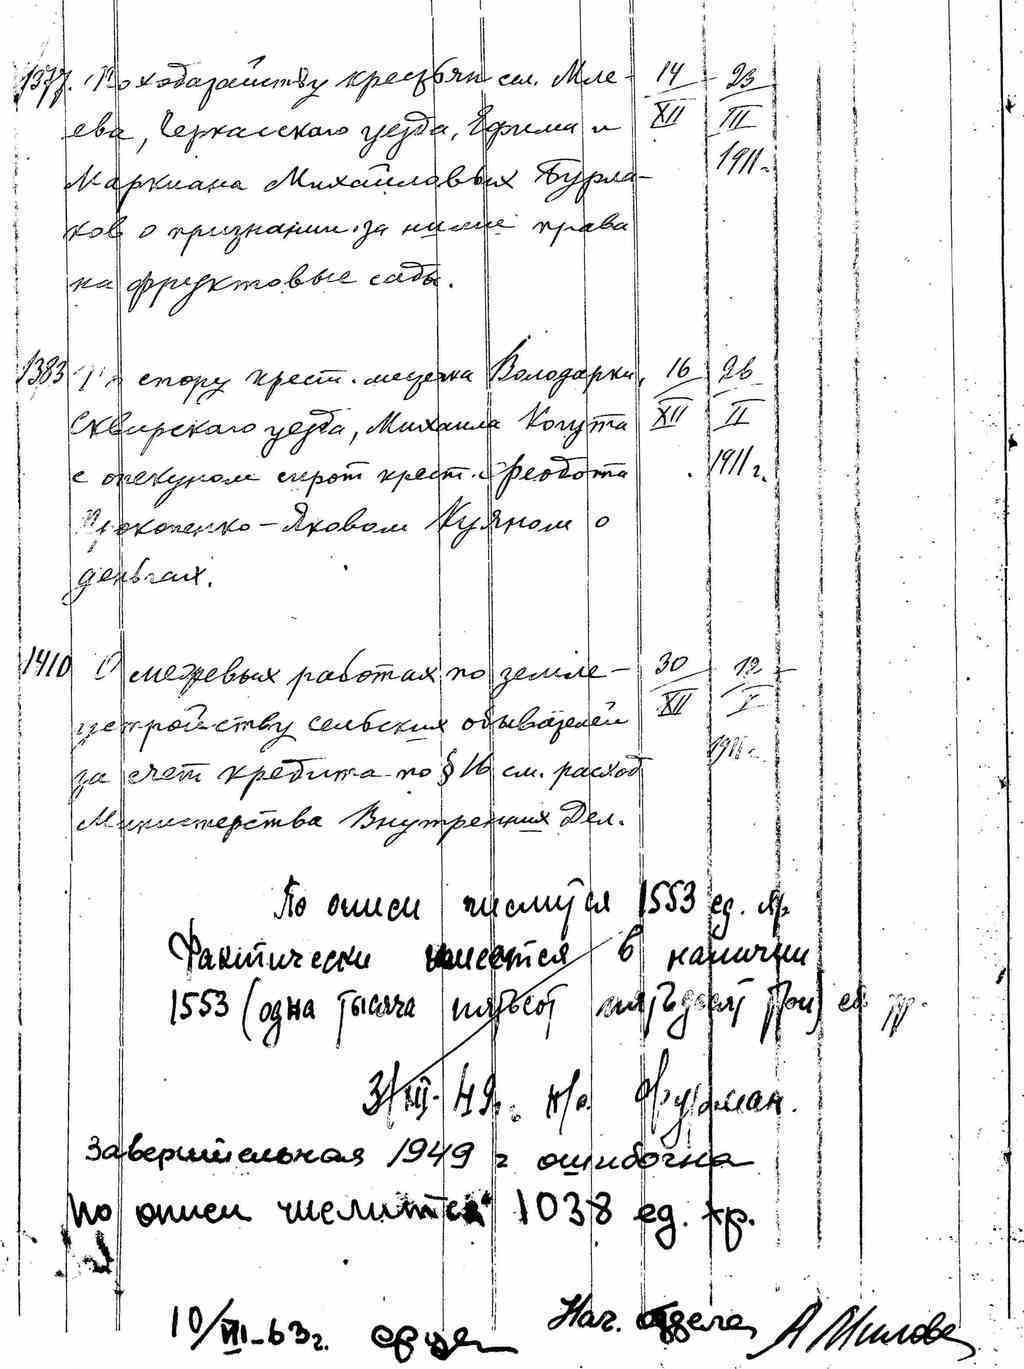 1377. По ходатайству крестьян сел. Мле- 14 23
ева, Черкасского уезда, Ефима и XII III
Маркиана Михайловых Бурла- 1911 г.
ков о признании за ними права
на фруктовые сады.
1383 По спору крест. местечка Володарки, 16 26
Сквирского уезда, Михаила Когута XII II
с опекуном сирот крест. Феодота 1911 г.
Прокопенко - Яковом Куяном о
деньгах.
1410 О межевых работах по земле- 30 12
устройству сельских обывателей XII I
за счет кредита по § 16 см. расход 1911 г.
Министерства Внутренних Дел.
По описи числится 1553 ед. хр
Фактически имеется в наличии
1553 (одна тысяча пятьсот пятьдесят три) ед хр.
3/III-49г. Фурман.
Заверительная 1949 г ошибочна
По описи числится 1038 ед. хр.
10/III-63г.
Нач. отдела